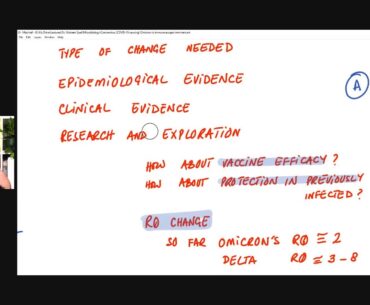 TYPE OF CHANGE NEEDED
EPIDEMIOLOGICAL EVIDENCE
A
CLINICAL EVIDENCE
RESEARCH AND EXPLORATION
HOW ABOUT VACCINE EFFICACY ?
HOW ABOUT PROTECTION IN PREVIOUSLY
INFECTED ?
R0 CHANGE
SO FAR OMICRON'S R0 ≅ 2
DELTA R0 ≅ 3 - 8